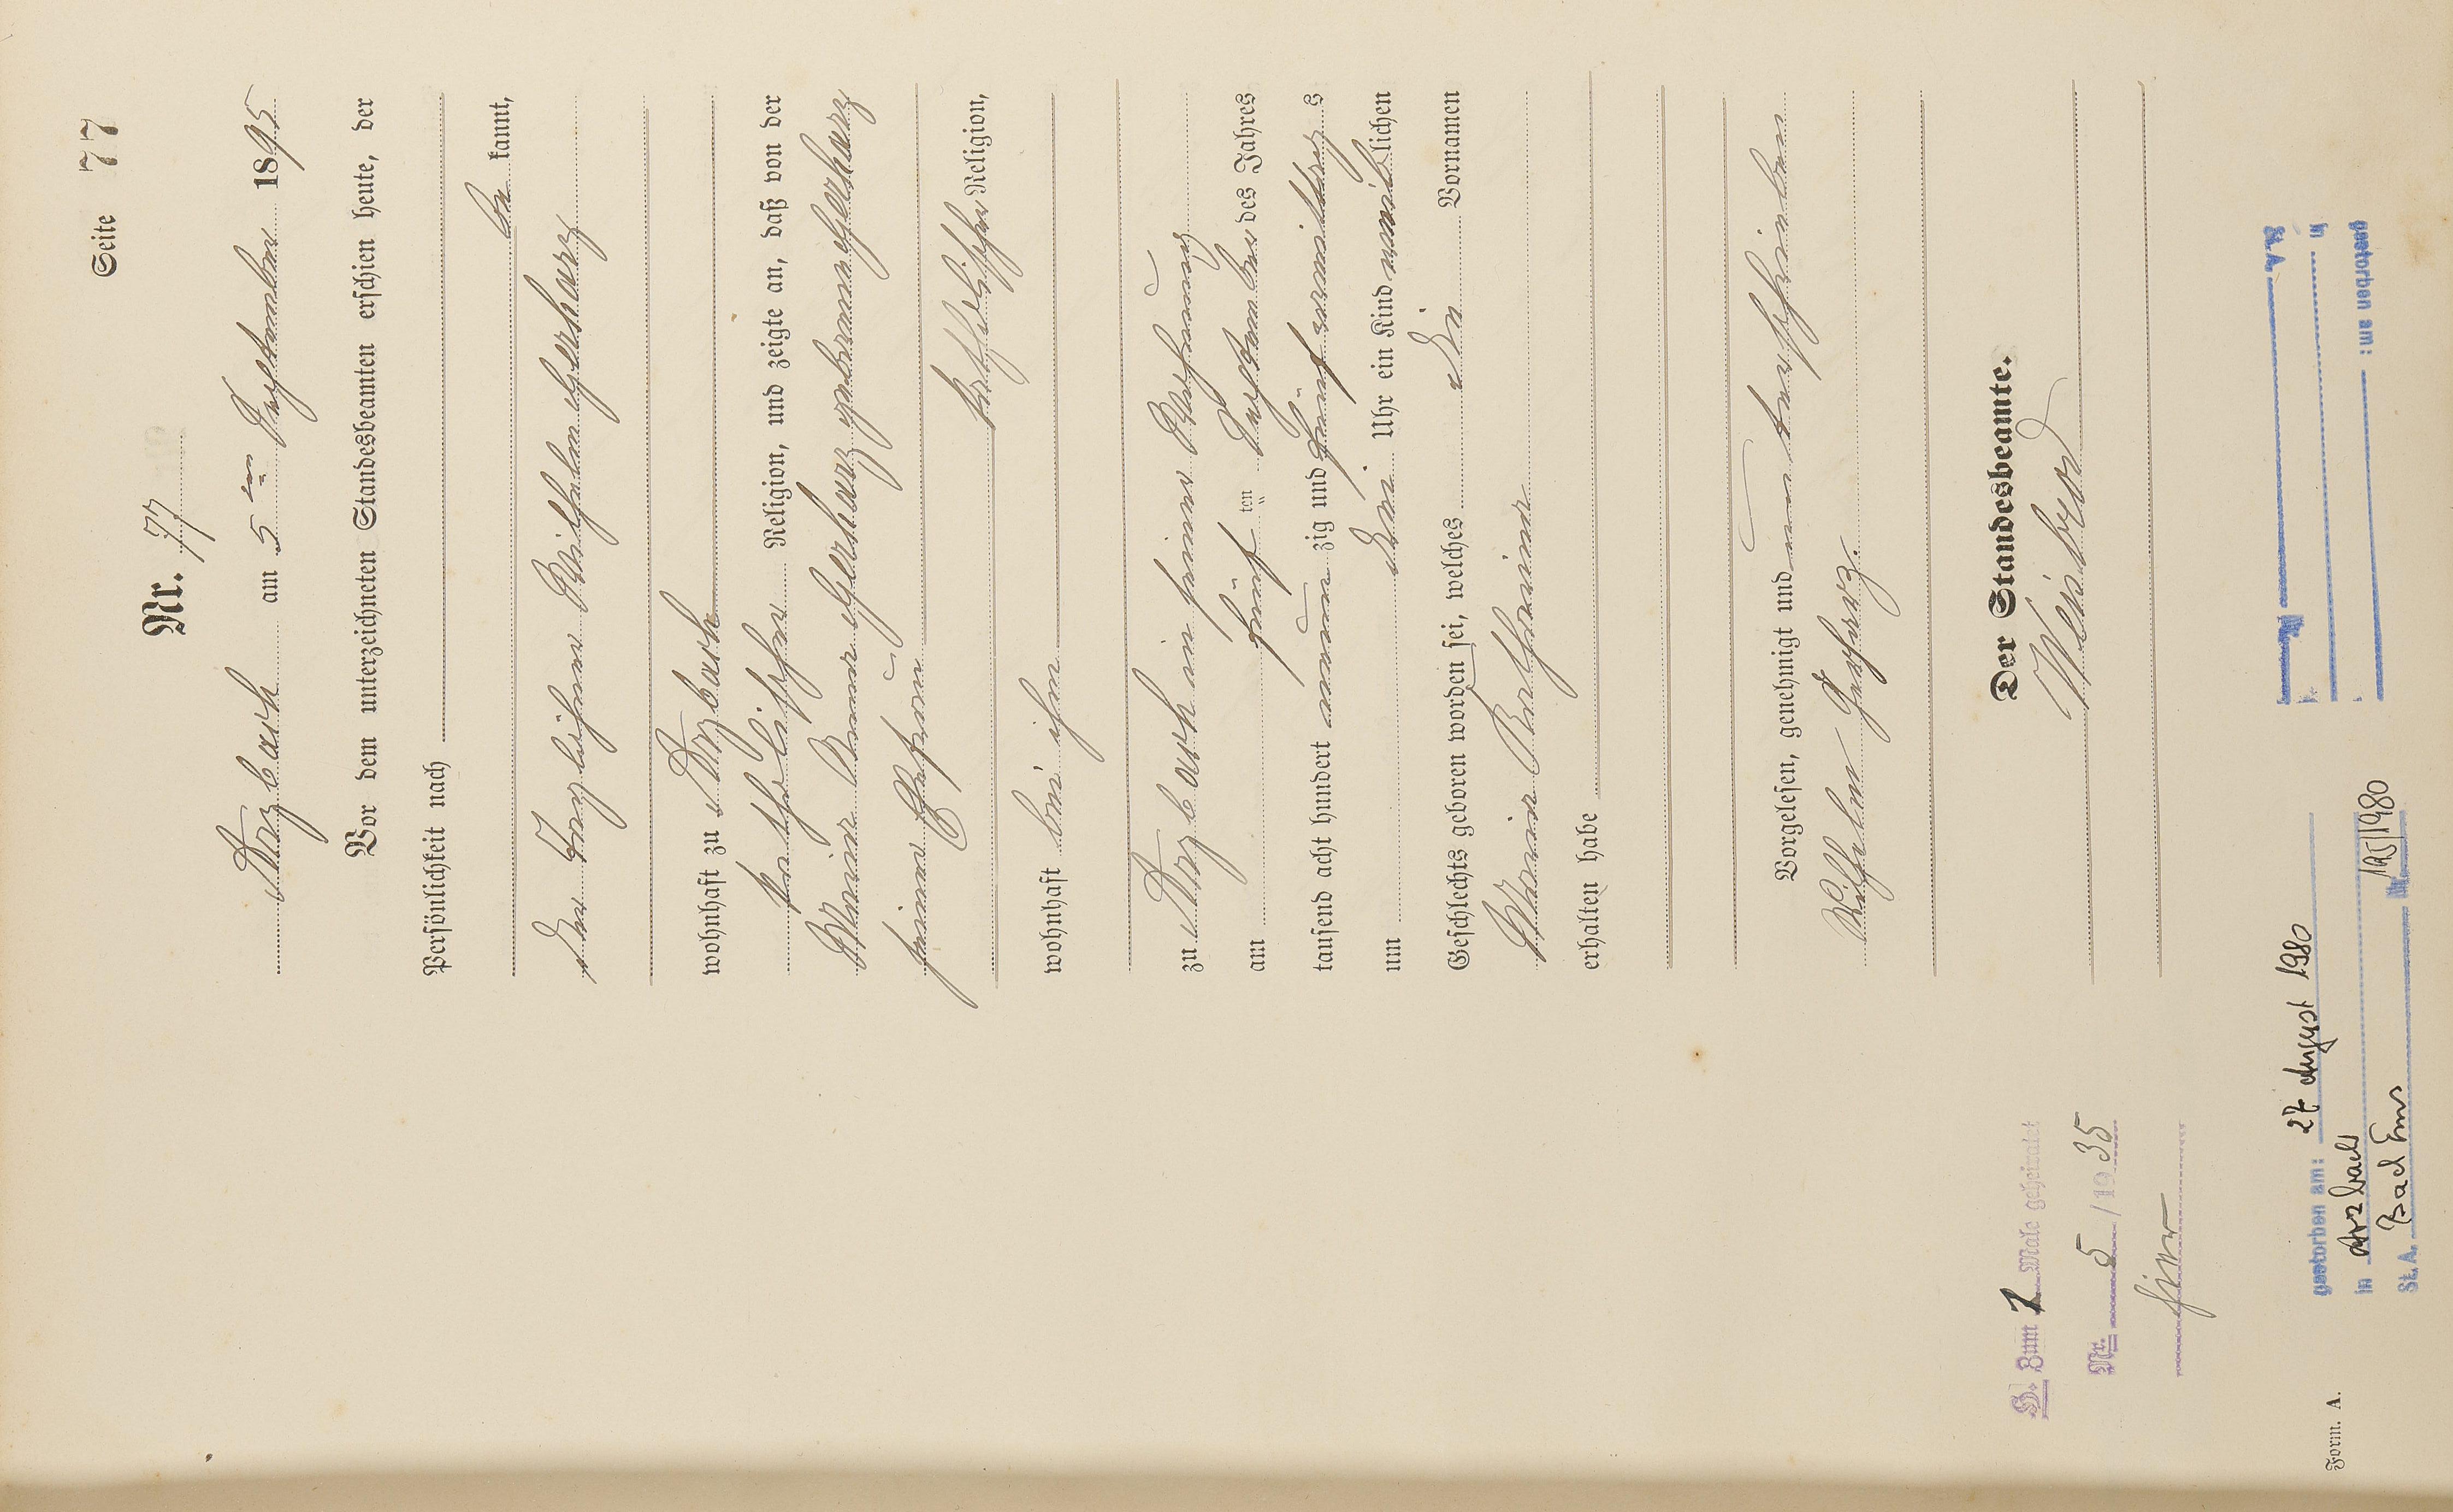 Seite 77
Nr. 77
Arzbach am 5ten September 1895
Vor dem unterzeichneten Standesbeamten erschien heute, der
Persönlichkeit nach
be kannt,
der Bergleihers Wilhelm Gerharz
wohnhaft zu Arzbach
katholischer Religion, und zeigte an, daß von der
Maria Anna Gerharz geborenen Gerharz
seiner Ehefrau
katholischer Religion,
wohnhaft bei ihm
zu Arzbach in seiner Wohnung
am fünf ten September des Jahres
tausend acht hundert neun zig und fünf vormittags
um drei Uhr ein Kind weiblichen
Geschlechts geboren worden sei, welches die Vornamen
Maria Katharina
erhalten habe
Vorgelesen, genehmigt und unterschrieben
Wilhelm Gerharz.
Der Standesbeamte.
H. Zum 1 Male geheiratet
Nr. 5 / 1935
hier
gestorben am: 27 August 1980
in Arzbach
St. A. Bad Ems Nr. 125/1980
gestorben am:
in
St. A. Nr.
Form. A.